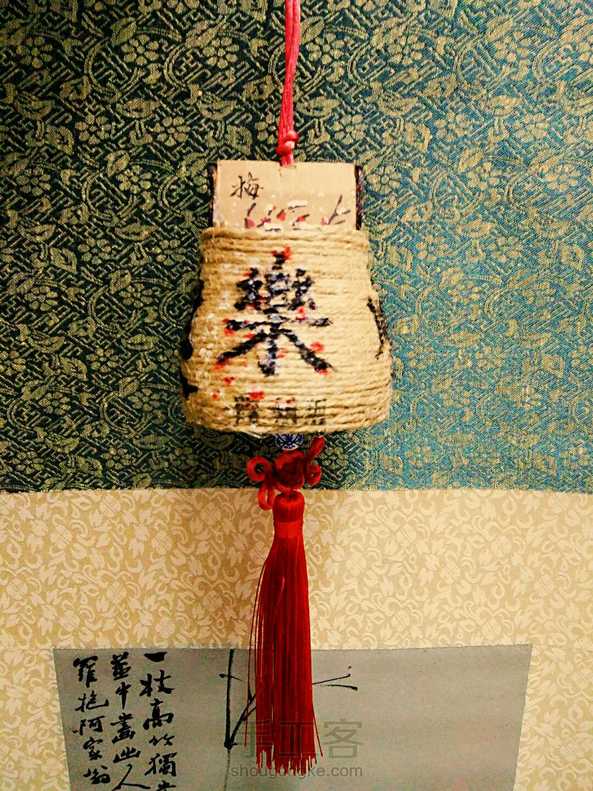 梅
樂
一枝高竹獨
蓋中畫出人
羅抱阿家翁
手工客
shougongke.com